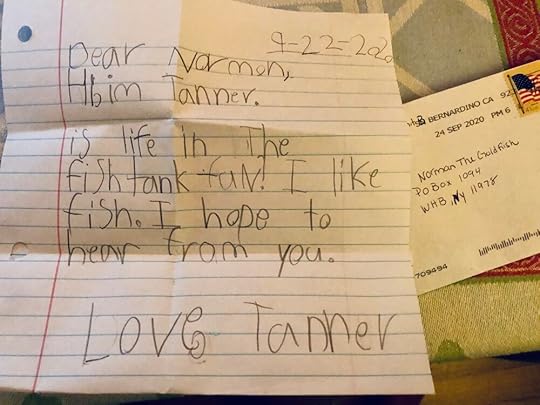 9-22-2020
Dear Norman,
Hi im Tanner.
is life in The
fish tank fun! I like
fish. I hope to
hear from you.
Love Tanner
BERNARDINO CA 92
24 SEP 2020 PM 6
Norman The Goldfish
PO Box 1094
WHB, NY 11978
709494